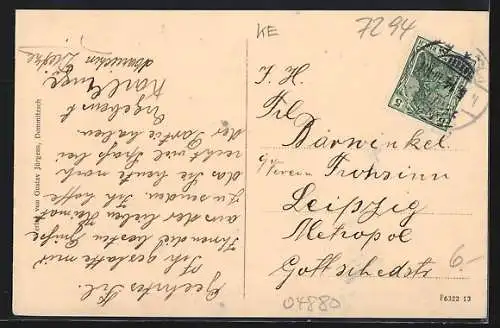 KE
7294
I. H.
Frl.
Bärwinkel.
Verein Frohsinn
Leipzig
Metropol
Gottschedstr
6.-
04880
F6322 13
5
Verlag von Gustav Jürgens, Dommitzsch
Geehrtes Frl.
Ich gestatte mir
Ihnen die besten Grüße
aus der lieben Heimat
zu senden. Ich hoffe
das Sie heute noch
recht viel Spaß bei
der Partie haben.
Ergebenst
Karl